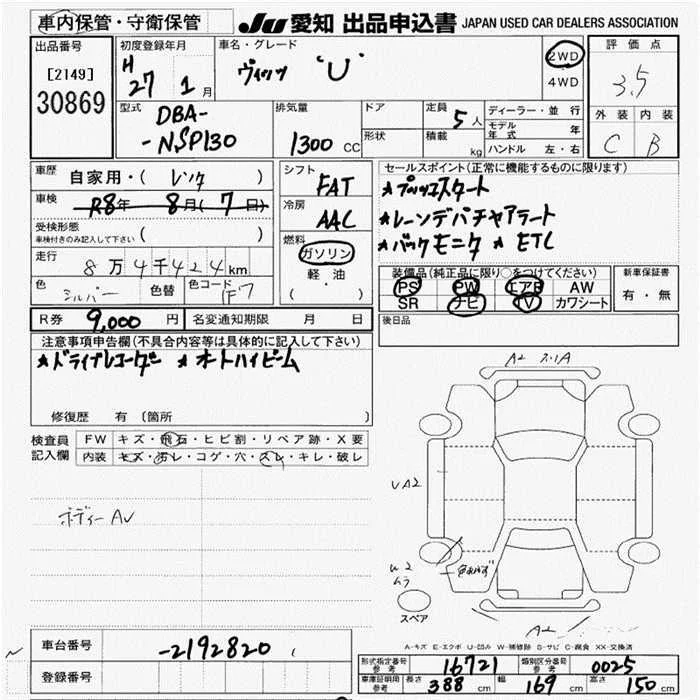 車内保管・守衛保管 JU 愛知 出品申込書 JAPAN USED CAR DEALERS ASSOCIATION
出品番号 [2149] 30869
初度登録年月 H 27年 1月
車名・グレード ヴィッツ 'U'
2WD 4WD
評価点 3.5
外装 内装
C B
型式 DBA--NSP130
排気量 1300 CC
ドア 形状
定員 5人
積載 kg
ディーラー・並行
モデル年式 年
ハンドル 左・右
車歴 自家用・( レンタ )
車検 R8年 8月(7日)
受検形態 車検付きのみ記入して下さい ( )
走行 8万4千424km
色 シルバー 色替 色コード 1F7
シフト FAT
冷房 AAC
燃料 ガソリン 軽油 ( ・ )
セールスポイント(正常に機能するものに限ります)
★プッシュスタート
★レーンデパーチャアラート
★バックモニタ ★ETC
装備品(純正品に限り○をつけてください)
PS PW エアB AW
SR ナビ TV カワシート
新車保証書 有・無
R券 9,000円 名変通知期限 月 日
後日品
注意事項申告欄(不具合内容等は具体的に記入して下さい)
★ドライブレコーダー ★オートハイビーム
修復歴 有 〔箇所 〕
検査員記入欄 FW キズ・飛石・ヒビ割・リペア跡・X要
内装 キズ・汚レ・コゲ・穴・スレ・キレ・破レ
ボディーAU
A2
UA2
W2
ムラ
色あせず
A2
スペア
A-キズ E-エクボ U-凹ミ W-補修跡 S-サビ C-腐食 XX-交換済
車台番号 -2192820
登録番号
形式指定番号 参考 16721 類別区分番号 参考 0025
車庫証明用 参考 長さ 388 cm 幅 169 cm 高さ 150 cm